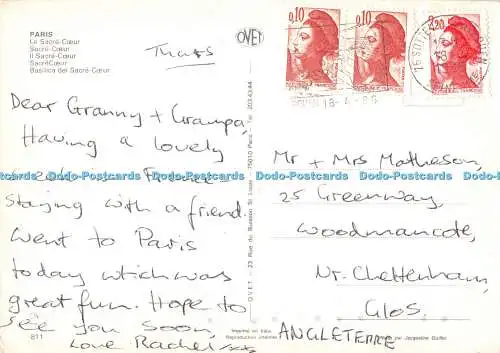 PARIS
Le Sacré-Cœur
Sacré-Cœur
Il Sacré-Cœur
SacréCœur
Basilica del Sacré-Cœur
Thurs
OVET
0,10
0,10
2,20
18-4-86
Dear Granny + Grampa,
Having a lovely
in France
staying with a friend.
Went to Paris
today which was
great fun. Hope to
see you soon,
Love Rachel xx
811
O.V.E.T. - 23 Rue du Buisson St Louis - 75010 Paris - Tel. 203.43.44
Mr + Mrs Matheson,
25 Greenway,
Woodmancote,
Nr. Cheltenham,
Glos.
ANGLETERRE
Imprimé en Italie
Reproduction interdite
par Jacqueline Guillot
Dodo-Postcards Dodo-Postcards Dodo-Postcards Dodo-Postcards Dodo-Postcards Dodo-Postcards